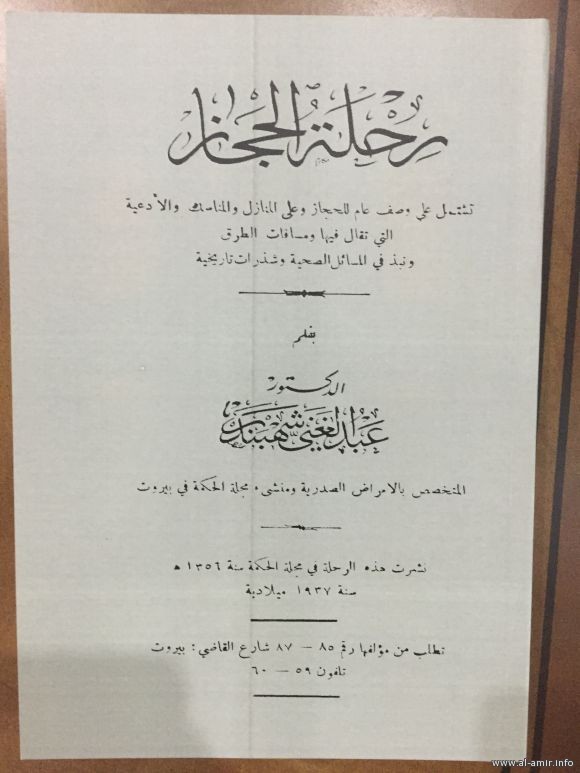 رحلة الحجاز
تشتمل على وصف عام للحجاز وعلى المنازل والمناسك والأدعية
التي تقال فيها ومسافات الطرق
ونبذ في المسائل الصحية وشذرات تاريخية
بقلم
الدكتور
عبد الغني شهبندر
المتخصص بالامراض الصدرية ومنشىء مجلة الحكمة في بيروت
نشرت هذه الرحلة في مجلة الحكمة سنة ١٣٥٦ هـ
سنة ١٩٣٧ ميلادية
تطلب من مؤلفها رقم ٨٥ – ٨٧ شارع القاضي: بيروت
تلفون ٥٩ – ٦٠
www.al-amir.info